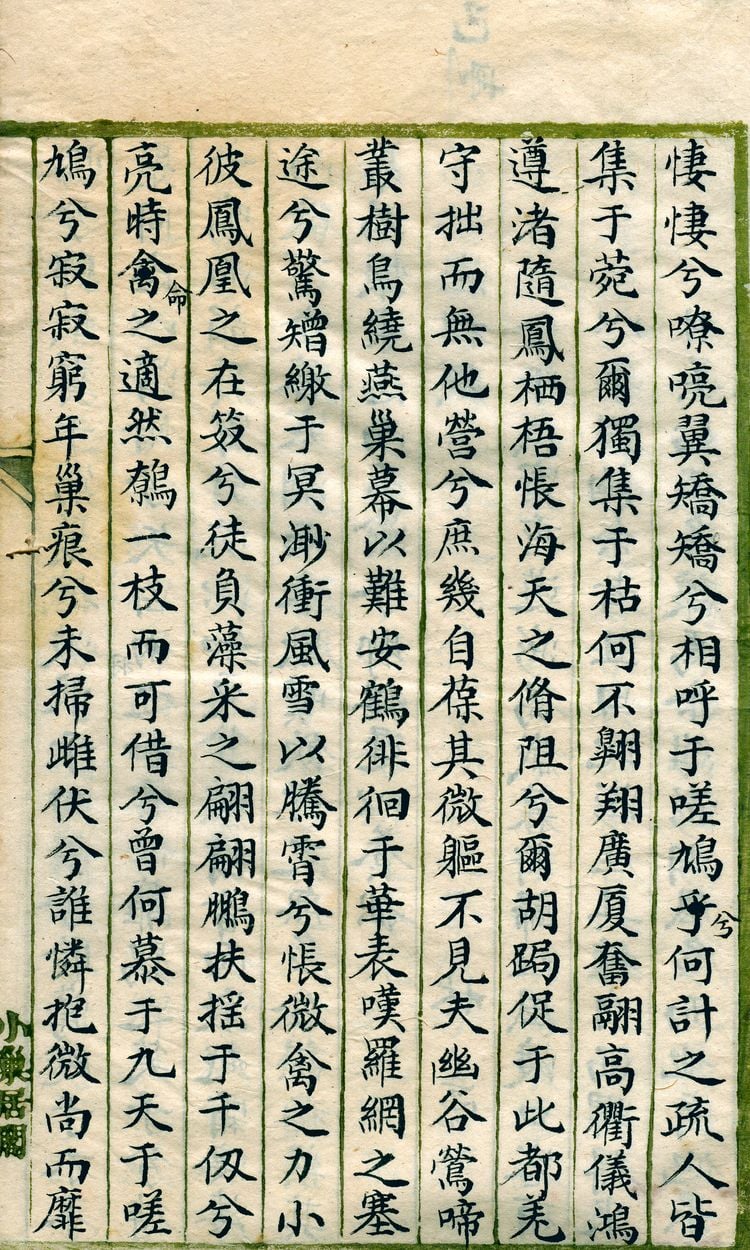 悽悽兮嘹喨翼矯矯兮相呼于嗟鳩乎何計之疏人皆
兮
集于菀兮爾獨集于枯何不翺翔廣厦奮翮高衢儀鴻
遵渚隨鳳栖梧悵海天之脩阻兮爾胡跼促于此都羌
守拙而無他營兮庶幾自葆其微軀不見夫幽谷鶯啼
叢樹烏繞燕巢幕以難安鶴徘徊于華表嘆羅網之塞
途兮驚矰繳于冥渺衝風雪以騰霄兮悵微禽之力小
彼鳳凰之在笯兮徒負藻采之翩翩鵬扶摇于千仭兮
亮時禽之適然鷦一枝而可借兮曾何慕于九天于嗟
命
鳩兮寂寂窮年巢痕兮未掃雌伏兮誰憐抱微尚而靡
小居閣